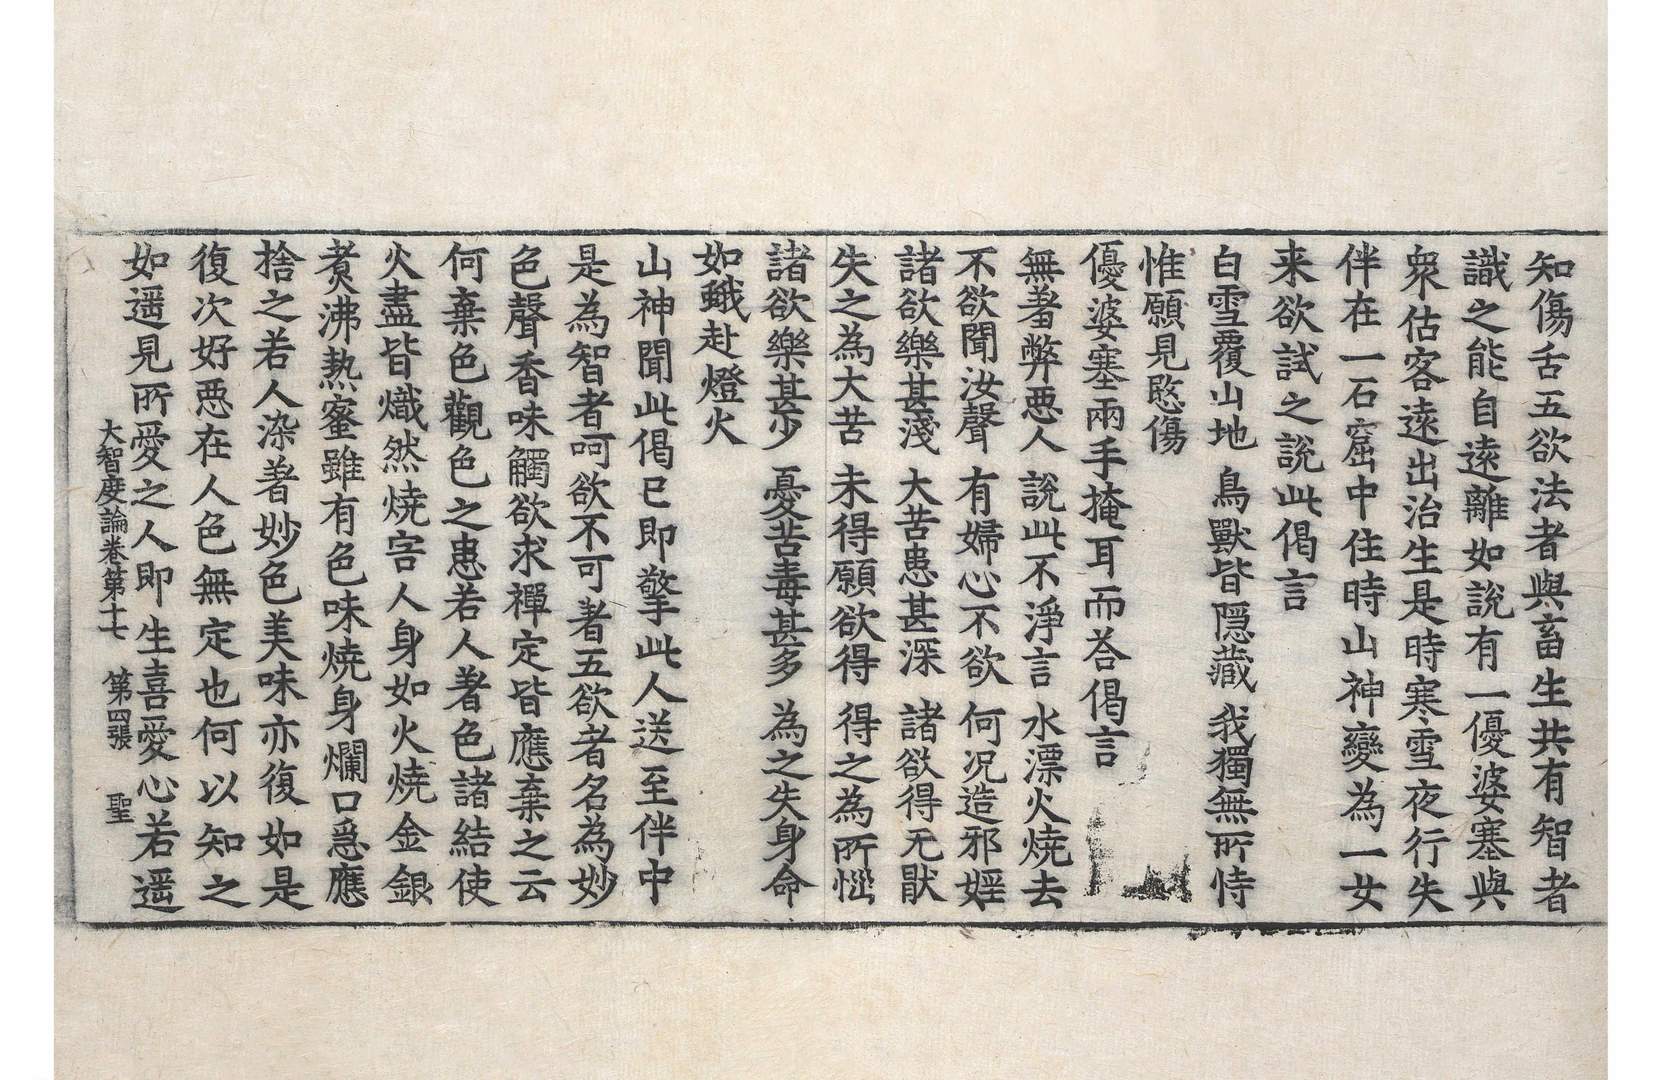 知傷舌五欲法者與畜生共有智者
識之能自遠離如說有一優婆塞與
衆估客遠出治生是時寒雪夜行失
伴在一石窟中住時山神變為一女
来欲試之說此偈言
白雪覆山地 鳥獸皆隱藏 我獨無所恃
惟願見愍傷
優婆塞兩手掩耳而荅偈言
無羞弊惡人 說此不淨言 水漂火燒去
不欲聞汝聲 有婦心不欲 何況造邪婬
諸欲樂甚淺 大苦患甚深 諸欲得无猒
失之為大苦 未得願欲得 得之為所惱
諸欲樂甚少 憂苦毒甚多 為之失身命
如蛾赴燈火
山神聞此偈已即擎此人送至伴中
是為智者呵欲不可者五欲者名為妙
色聲香味觸欲求禪定皆應棄之云
何棄色觀色之患若人著色諸結使
火盡皆熾然燒害人身如火燒金銀
煮沸熱蜜雖有色味燒身爛口急應
捨之若人染著妙色美味亦復如是
復次好惡在人色無定也何以知之
如遥見所愛之人即生喜愛心若遥
大智度論卷第十七 第四張 聖